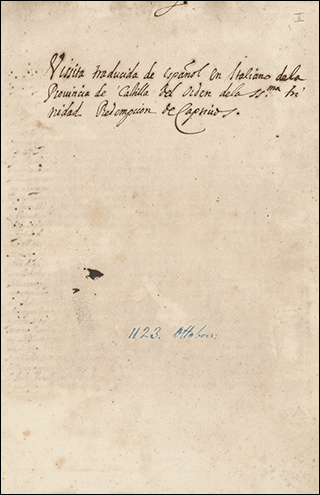 I
Vissita traducida de español en Italiano de la
Prouincia de Castilla del Orden de la SS.ma tri
nidad Redempcion de Captiuos.
1123. Ottobon: